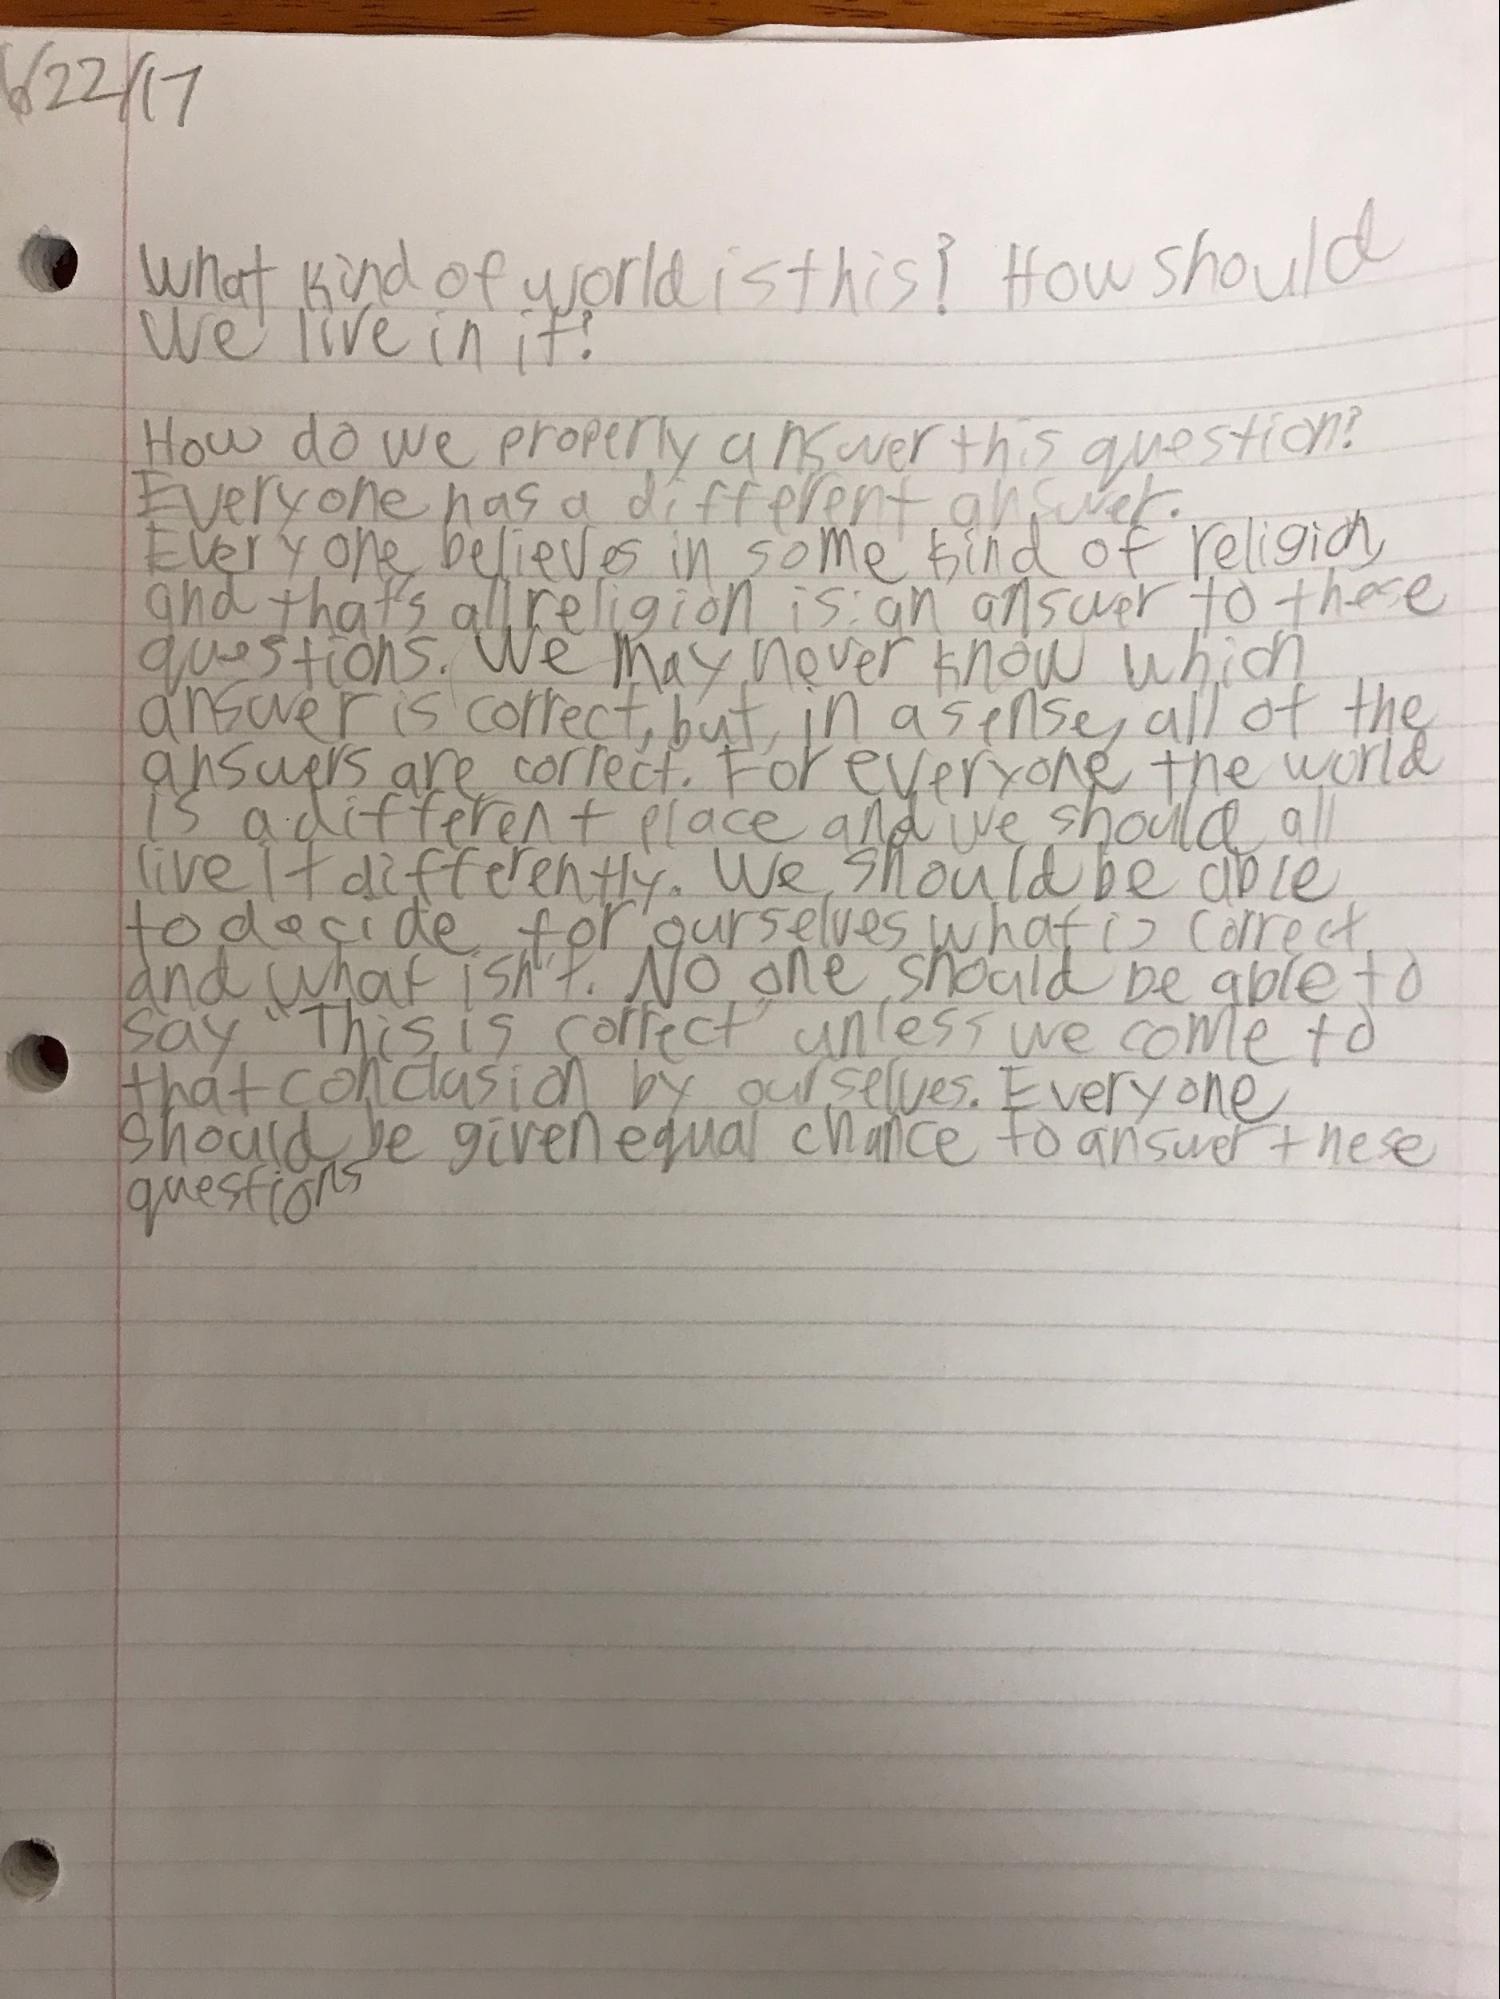 6/22/17
What kind of world is this? How should
we live in it?
How do we properly answer this question?
Everyone has a different answer.
Everyone believes in some kind of religion,
and that's all religion is: an answer to these
questions. We may never know which
answer is correct, but, in a sense, all of the
answers are correct. For everyone, the world
is a different place and we should all
live it differently. We should be able
to decide for ourselves what is correct
and what isn't. No one should be able to
say "This is correct" unless we come to
that conclusion by ourselves. Everyone
should be given equal chance to answer these
questions